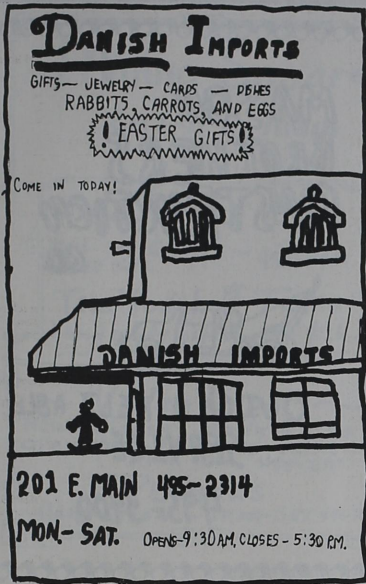 DANISH IMPORTS
GIFTS - JEWELRY - CARDS - DISHES
RABBITS, CARROTS, AND EGGS
! EASTER GIFTS !
COME IN TODAY!
DANISH IMPORTS
201 E. MAIN 495-2314
MON.- SAT. OPENS-9:30 AM, CLOSES - 5:30 P.M.